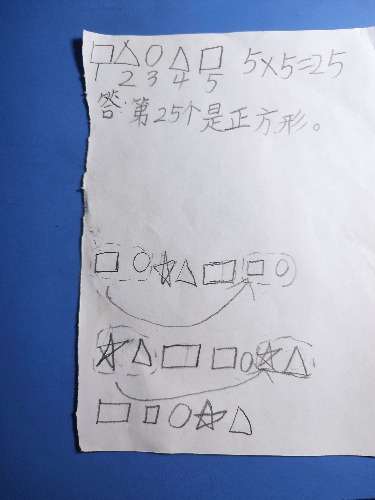 5×5=25
1 2 3 4 5
答:第25个是正方形。